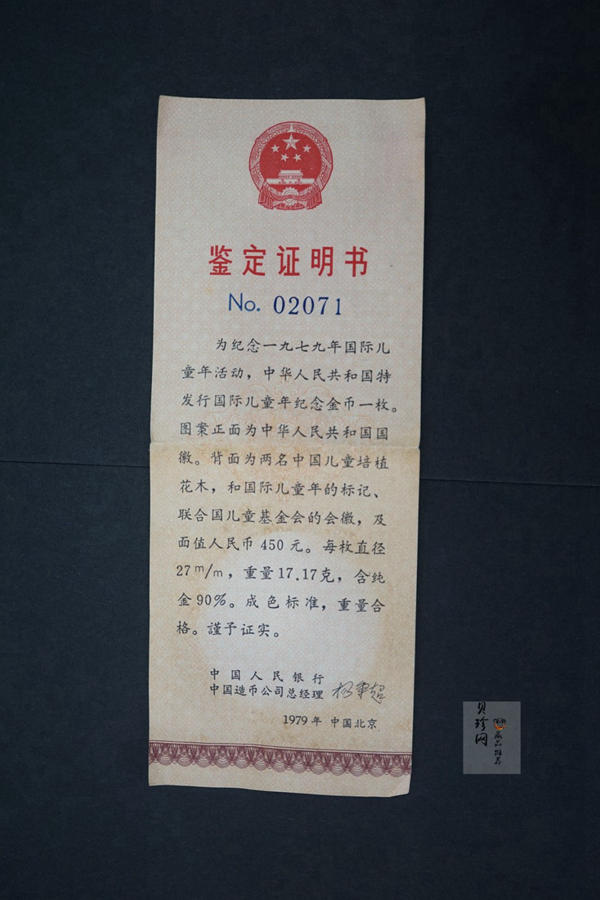 鉴定证明书
No. 02071
为纪念一九七九年国际儿
童年活动，中华人民共和国特
发行国际儿童年纪念金币一枚。
图案正面为中华人民共和国国
徽。背面为两名中国儿童培植
花木，和国际儿童年的标记、
联合国儿童基金会的会徽，及
面值人民币 450 元。每枚直径
27 m/m，重量 17.17 克，含纯
金 90%。成色标准，重量合
格。謹予证实。
中国人民银行
中国造币公司总经理
1979 年 中国北京
贝珍网
藏品推荐